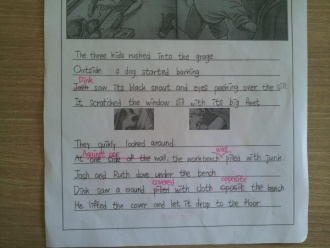 The three kids rushed into the grage.
Outside a dog started barning
Dink
Josh saw its black snout and eyes peeking over the sill
It scratched the window sill with its big feet
They quikly looked around.
Against one wall
At one side of the wall, the workbench piled with junk
Josh and Ruth dove under the bench
covered opposite
Dink saw a mound piled with cloth oposite the bench
He lifted the cover and let it drop to the floor